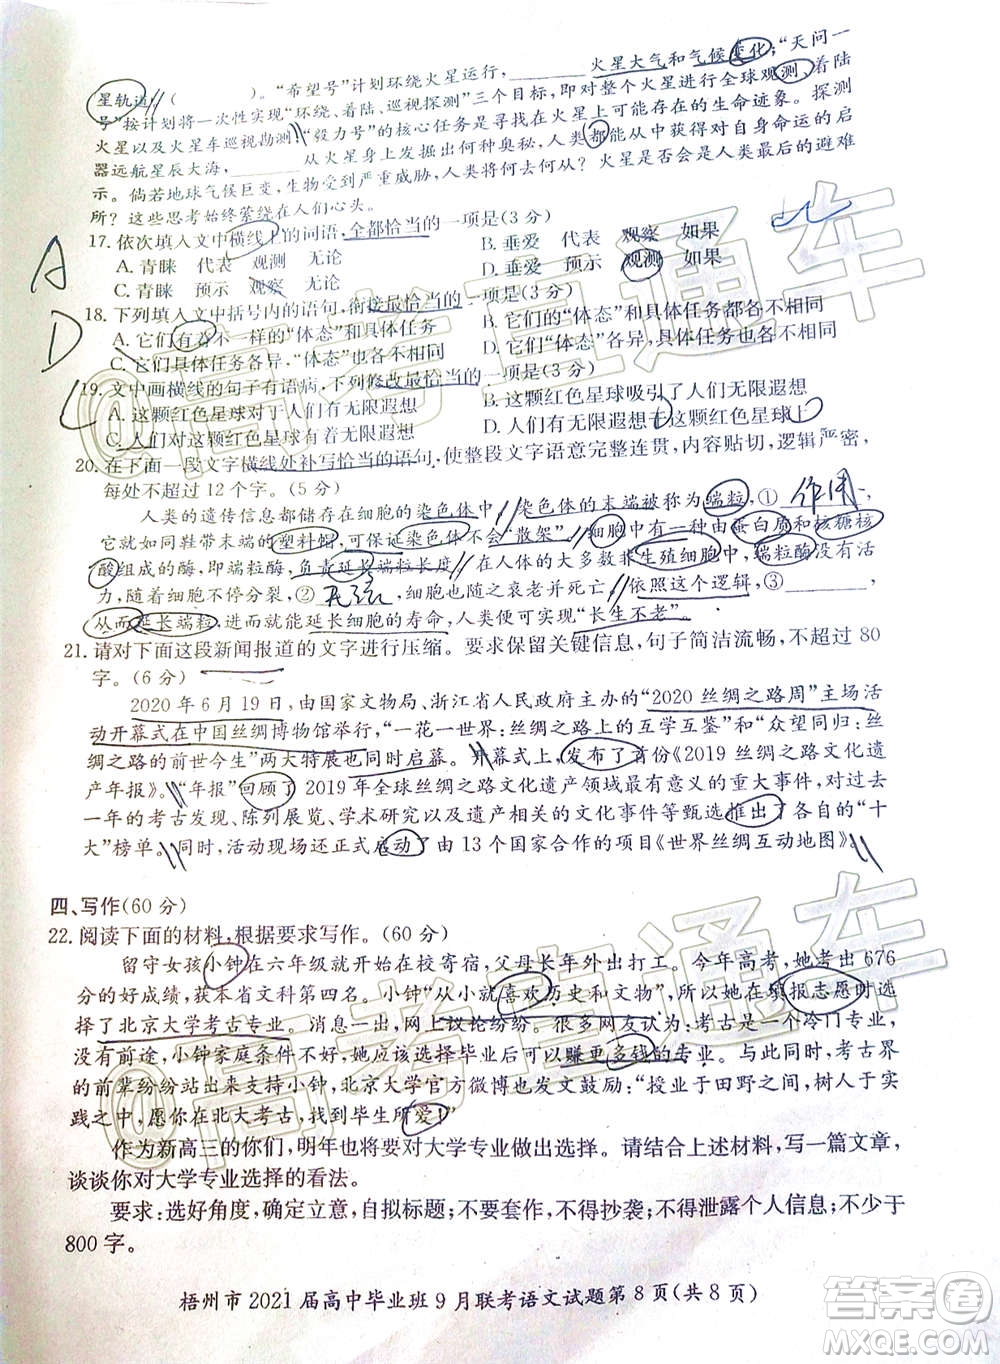 “希望号”计划环绕火星运行,________火星大气和气候变化;“天问一
星轨道(　　　)。
号”按计划将一次性实现“环绕、着陆、巡视探测”三个目标,即对整个火星进行全球观测、着陆
火星以及火星车巡视勘测;“毅力号”的核心任务是寻找火星上可能存在的生命迹象。探测
器远航星辰大海,________从火星身上发掘出何种奥秘,人类都能从中获得对自身命运的启
示。倘若地球气候巨变,生物受到严重威胁,人类将何去何从?火星是否会是人类最后的避难
所?这些思考始终萦绕在人们心头。
17. 依次填入文中横线上的词语,全都恰当的一项是(3 分)
A. 青睐　代表　观测　无论　B. 垂爱　代表　观察　如果
C. 青睐　预示　观察　无论　D. 垂爱　预示　观测　如果
18. 下列填入文中括号内的语句,衔接最恰当的一项是(3 分)
A. 它们有着不一样的“体态”和具体任务　B. 它们的“体态”和具体任务都各不相同
C. 它们具体任务各异,“体态”也各不相同　D. 它们“体态”各异,具体任务也各不相同
19. 文中画横线的句子有语病,下列修改最恰当的一项是(3 分)
A. 这颗红色星球对于人们有无限遐想　B. 这颗红色星球吸引了人们无限遐想
C. 人们对这颗红色星球有着无限遐想　D. 人们无限遐想于这颗红色星球上
20. 在下面一段文字横线处补写恰当的语句,使整段文字语意完整连贯,内容贴切,逻辑严密,
每处不超过 12 个字。(5 分)
人类的遗传信息都储存在细胞的染色体中,染色体的末端被称为端粒,①________,
它就如同鞋带末端的塑料帽,可保证染色体不会“散架”。细胞中有一种由蛋白质和核糖核
酸组成的酶,即端粒酶,负责延长端粒长度。在人体的大多数非生殖细胞中,端粒酶没有活
力,随着细胞不停分裂,②________,细胞也会逐渐衰老并死亡。依照这个逻辑,③________,
从而延长端粒,进而就能延长细胞的寿命,人体便有可能实现“长生不老”。
21. 请对下面这段新闻报道的文字进行压缩。要求保留关键信息,句子简洁流畅,不超过 80
字。(6 分)
2020 年 6 月 19 日,由国家文物局、浙江省人民政府主办的“2020 丝绸之路周”主场活
动开幕式在中国丝绸博物馆举行,“一花一世界:丝绸之路上的互学互鉴”和“众望同归:丝
绸之路的前世今生”两大特展也同时启幕。开幕式上,发布了首份《2019 丝绸之路文化遗
产年报》。“年报”回顾了 2019 年全球丝绸之路文化遗产领域最有意义的重大事件,并对过去
一年的考古发现、陈列展览、学术研究以及遗产相关的文化事件等甄选推出了各自的“十
大”榜单。同时,活动现场还正式启动了由 13 个国家合作的项目《世界丝绸互动地图》。
四、写作(60 分)
22. 阅读下面的材料,根据要求写作。(60 分)
留守女孩小钟在六年级就开始在校寄宿,父母长年外出打工。今年高考,她考出 676
分的好成绩,获本省文科第四名。小钟“从小就喜欢历史和文物”,所以她在填报志愿时选
择了北京大学考古专业。消息一出,网上议论纷纷。很多网友认为:考古是一个冷门专业,
没有前途,小钟家庭条件不好,应该选择毕业后可以赚更多钱的专业。而与此同时,考古界
的前辈纷纷站出来支持小钟,北京大学官方微博也发文鼓励:“授业于田野之间,树人于实
践之中,愿你在北大考古,找到毕生所爱!”
作为新高三的你们,明年也将要对大学专业做出选择。请结合上述材料,写一篇文章,
谈谈你对大学专业选择的看法。
要求:选好角度,确定立意,自拟标题;不要套作,不得抄袭;不得泄露个人信息;不少于
800 字。
梧州市 2021 届高中毕业班 9 月联考语文试题第 8 页(共 8 页)
A
D
C
@高考直通车
@高考直通车
答案圈
MXQE.COM